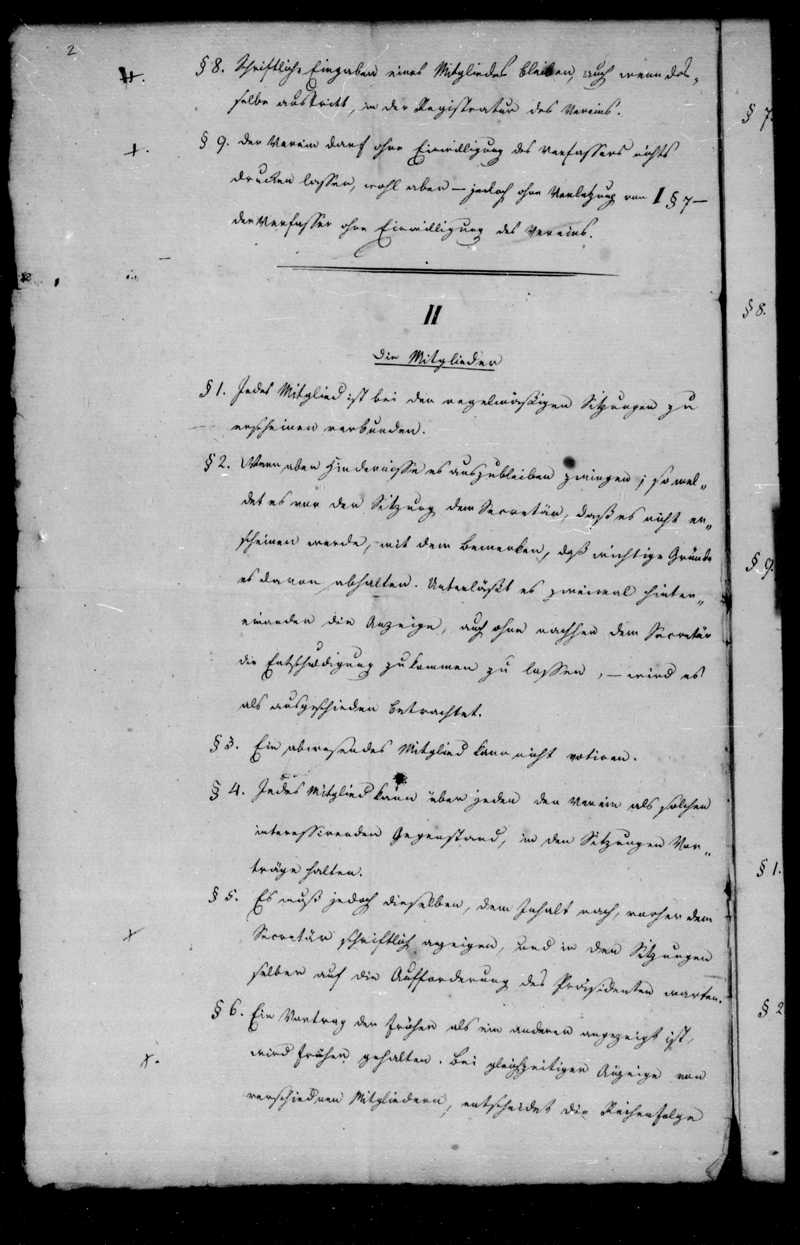 2
§ 8. Schriftliche Eingaben eines Mitgliedes bleiben, auch wenn das„
selbe austritt, in der Registratur des Vereins.
§ 9. Der Verein darf ohne Einwilligung des Verfassers nichts
drucken lassen, wohl aber – jedoch ohne Verletzung von I § 7 –
der Verfasser ohne Einwilligung des Vereins.
II
Die Mitglieder
§ 1. Jedes Mitglied ist bei den regelmäßigen Sitzungen zu
erscheinen verbunden.
§ 2. Wenn aber Hindernisse es auszubleiben zwingen; so mel„
det es vor der Sitzung dem Secretär, daß es nicht er„
scheinen werde, mit dem Bemerken, daß wichtige Gründe
es davon abhalten. Unterläßt es zweimal hinter„
einander die Anzeige, auch ohne nachher dem Secretär
die Entschuldigung zukommen zu lassen, – wird es
als ausgeschieden betrachtet.
§ 3. Ein abwesendes Mitglied kann nicht votiren.
§ 4. Jedes Mitglied kann über jeden den Verein als solchen
interessirenden Gegenstand, in den Sitzungen Vor„
träge halten.
§ 5. Es muß jedoch dieselben, dem Inhalt nach, vorher dem
Secretär schriftlich anzeigen, und in den Sitzungen
selber auf die Aufforderung des Präsidenten warten.
§ 6. Ein Vortrag der früher als ein anderer angezeigt ist,
wird früher gehalten. Bei gleichzeitiger Anzeige von
verschiednen Mitgliedern, entscheidet die Reihenfolge
§ 7.
§ 8.
§ 9.
§ 1.
§ 2